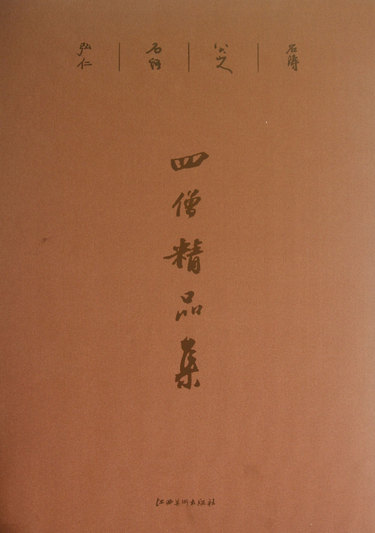 石涛
八大山人
石谿
弘仁
四僧精品集
江西美术出版社